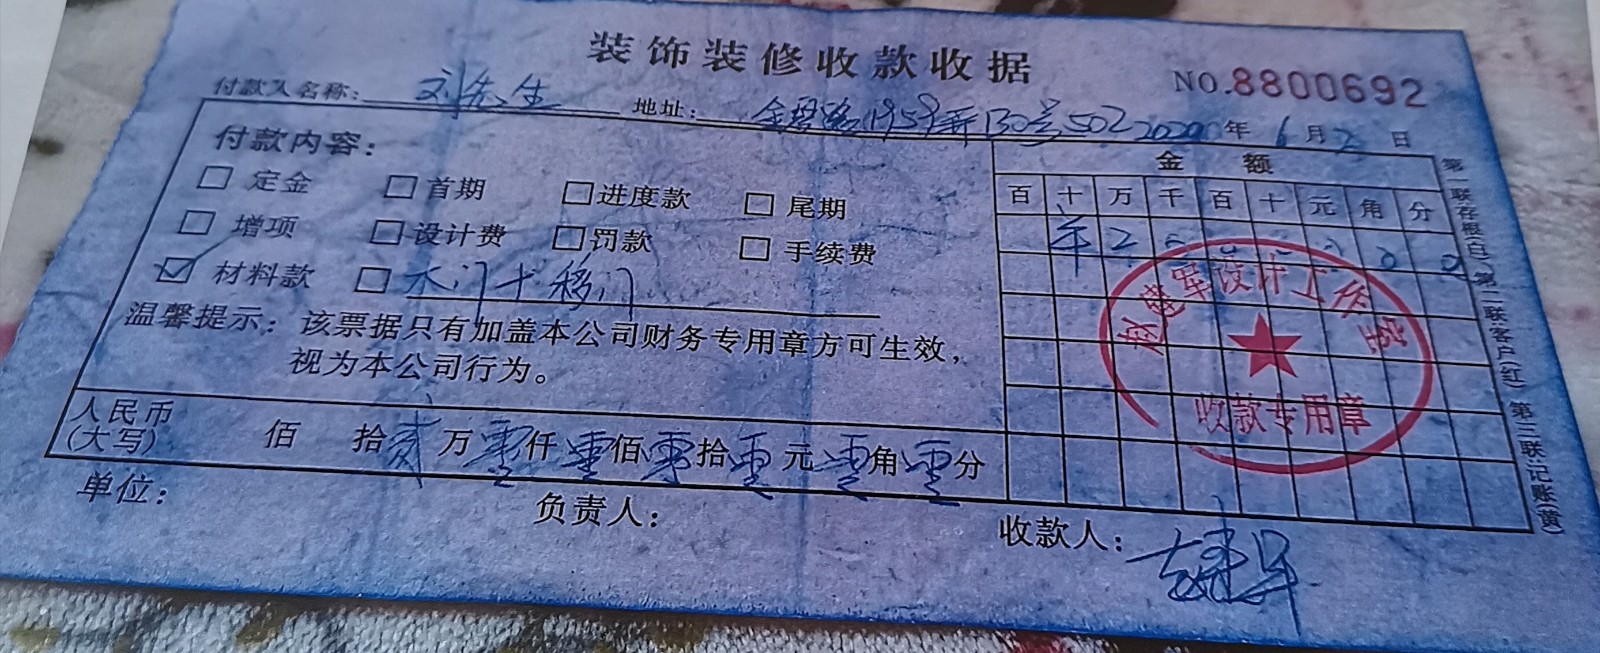 装饰装修收款收据
NO.8800692
付款人名称：刘先生 地址：金 路1959弄130号502 2020年6月2日
付款内容：
□定金 □首期 □进度款 □尾期
□增项 □设计费 □罚款 □手续费
☑材料款 □木门+移门
温馨提示：该票据只有加盖本公司财务专用章方可生效，
视为本公司行为。
金额
百 十 万 千 百 十 元 角 分
¥ 2 0 0 0 0 0 0
建军设计工作室
收款专用章
人民币(大写) 佰 拾 贰 万 零 仟 零 佰 零 拾 零 元 零 角 零 分
单位： 负责人： 收款人：建军
第一联存根(白) 第二联客户(红) 第三联记账(黄)